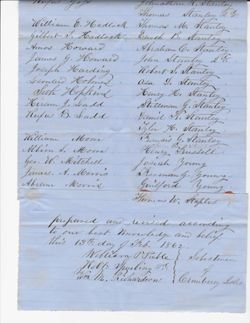 Johnathan R. Stanley
Thomas Stanley 2d
William E. Hadlock
Thomas M. Stanley
Gilbert T. Hadlock
Enoch B. Stanley
Amos Howard
Abraham C. Stanley
James G. Howard
John Stanley 2d
Joseph Harding
Robert S. Stanley
Leonard Holmes
Asa D. Stanley
Seth Hopkins
Henry H. Stanley
Hiram S. Ladd
Stillman G. Stanley
Rufus B. Ladd
Lewis Stanley
Tyler H. Stanley
William Moore
Francis G. Stanley
Henry Tinsdell
Geo. W. Mitchell
Josiah Young
James A. Morris
Freeman G. Young
Abram Morris
Guilford Young
Thomas W. Staples
prepared was revised according
to our best knowledge and belief
this 13th day of Feb. 1862
William P. Preble
Selectmen
of
Wm. M. Richardson
Cranberry Isles